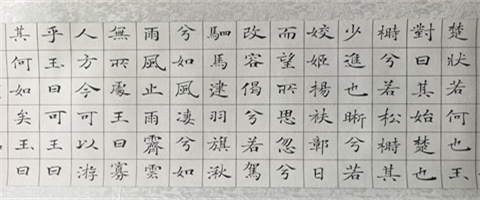 楚狀若何也玉
對曰其始楚也
榯兮若松榯其
少進也晰兮若
姣姬揚袂鄣日
而望所思忽兮
改容偈兮若駕
駟馬建羽旗湫
兮如風凄兮如
雨風止雨霽雲
無所處王曰寡
人方今可以游
乎玉曰可王曰
其何如矣玉曰